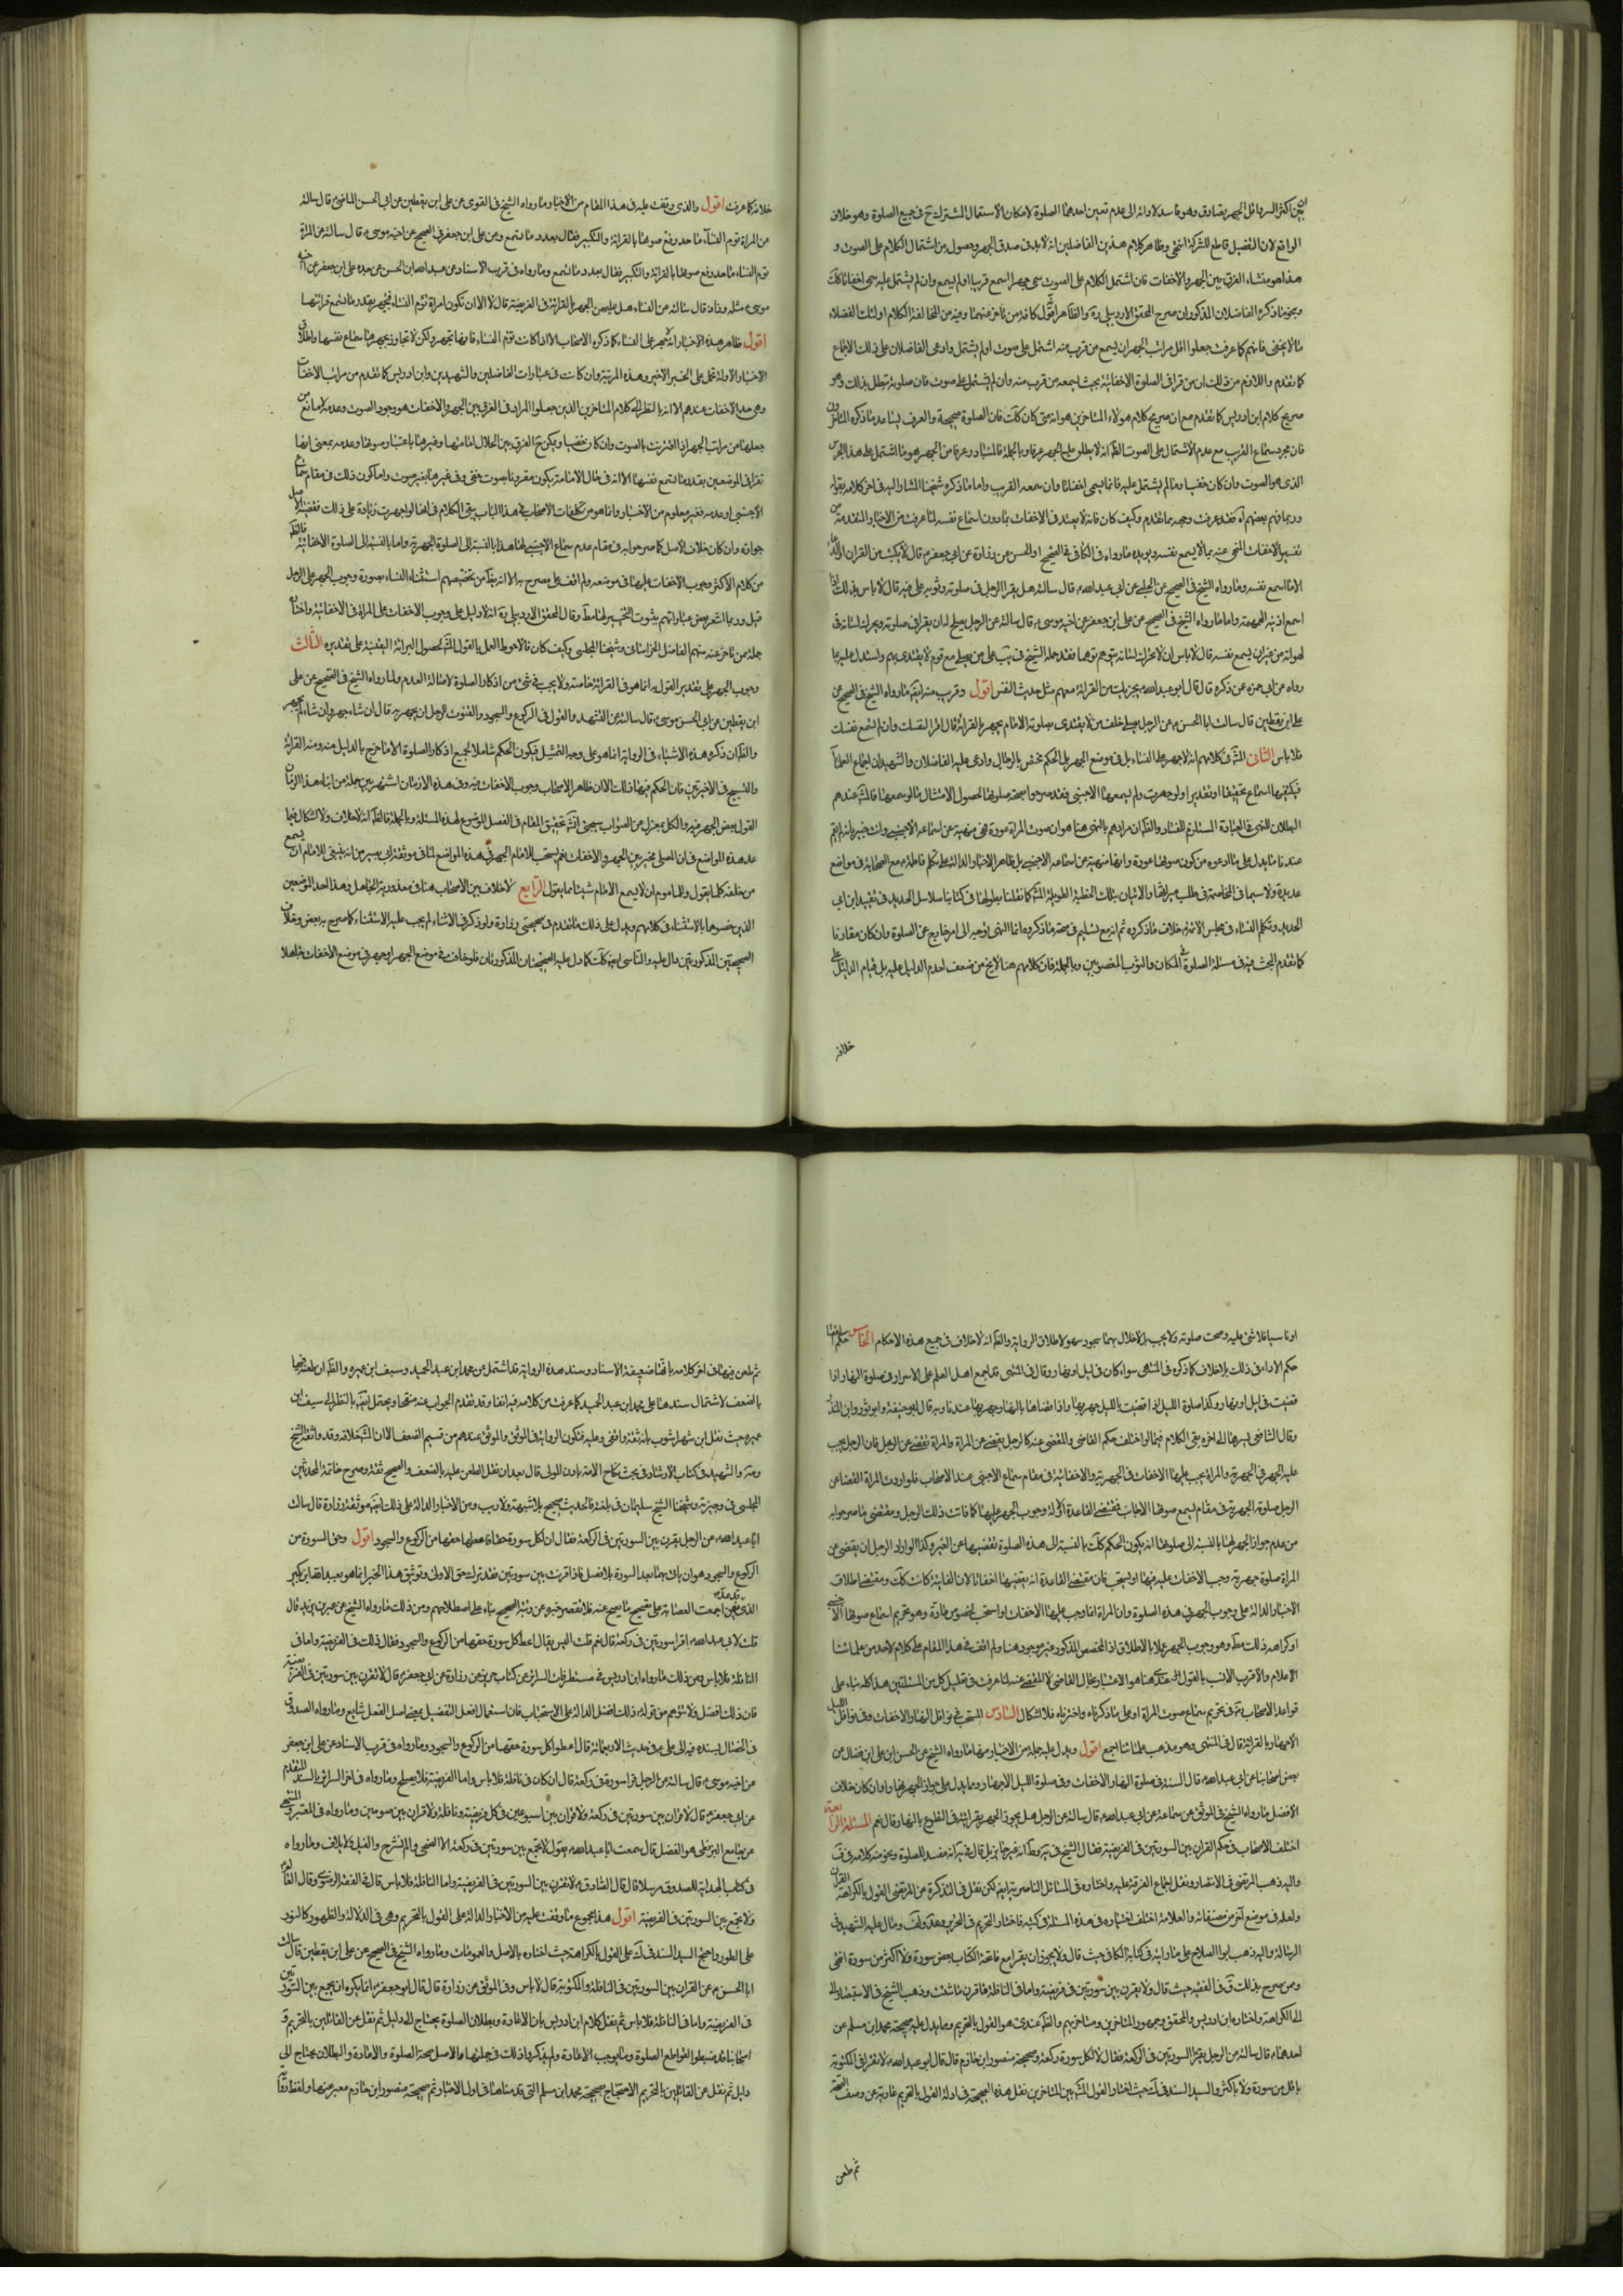 بين اكثر السر واقل الجهر تصادق وهو فاسد لادائه الى عدم تعين احدهما الصلوة لامكان الاستعمال المشترك ح في جميع الصلوة وهو خلاف
الواقع لان التفصيل قاطع للشركة انتهى وظاهر كلام هذين الفاضلين انه لابد في صدق الجهر وحصوله من اشتمال الكلام على الصوت و
هذا هو منشاء الفرق بين الجهر والاخفات فان اشتمل الكلام على الصوت سمى جهرا اسمع قريبا او لم يسمع وان لم يشتمل عليه سمى اخفاتا كك
وبنحو ما ذكره الفاضلان المذكوران صرح المحقق الاردبيلي ره والظاهر اقول كافة من تاخر عنهما وفيه من المخالفة لكلام اولئك الفضلاء
ما لا يخفى فانهم كما عرفت جعلوا اقل مراتب الجهر ان يسمع من قرب منه اشتمل على صوت او لم يشتمل وادعى الفاضلان على ذلك الاجماع
كما تقدم واللازم من ذلك ان من قرا في الصلوة الاخفاتية بحيث يسمعه من قرب منه وان لم يشتمل على صوت فان صلوته تبطل بذلك وهو
صريح كلام ابن ادريس كما تقدم مع ان صريح كلام هؤلاء المتاخرين هو انه متى كان كك فان الصلوة صحيحة والعرف يساعد ما ذكره المتاخرون
فان مجرد سماع القريب مع عدم الاشتمال على الصوت الظ انه لا يطلق عليه الجهر عرفا وبالجملة فالمتبادر عرفا من الجهر هو ما اشتمل على هذا الجرس
الذي هو الصوت وان كان خفيا وما لم يشتمل عليه فانما يسمى اخفاتا وان سمعه القريب واما ما ذكره شيخنا المشار اليه في اخر كلامه بقوله
وربما فهم بعضهم اه فقد عرفت وجهه مما تقدم وكيف كان فانه لا يعتد في الاخفات بما دون اسماع نفسه لما عرفت من الاخبار المتقدمة من
تفسير الاخفات المنهي عنه بما لا يسمع نفسه ويؤيده ما رواه في الكافي في الصحيح او الحسن عن زرارة عن ابي جعفر ع قال لا يكتب من القران والدعاء
الا ما اسمع نفسه وما رواه الشيخ في الصحيح عن الحلبي عن ابي عبدالله ع قال سالته هل يقرا الرجل في صلوته وثوبه على فيه قال لا باس بذلك اذا
اسمع اذنيه الهمهمة واما ما رواه الشيخ في الصحيح عن علي بن جعفر عن اخيه موسى ع قال سالته عن الرجل يصلح له ان يقرا في صلوته ويحرك لسانه في
لهواته من غير ان يسمع نفسه قال لا باس ان لا يحرك لسانه يتوهم توهما فقد حمله الشيخ في يب على من يصلي مع قوم لا يقتدى بهم واستدل عليه بما
رواه عن ابي حمزة عمن ذكره قال قال ابو عبدالله ع يجزيك من القراءة معهم مثل حديث النفس اقول وقريب منه ايضا ما رواه الشيخ في الصحيح عن
علي بن يقطين قال سالت ابا الحسن ع عن الرجل يصلي خلف من لا يقتدى بصلوته والامام يجهر بالقراءة قال اقرا لنفسك وان لم تسمع نفسك
فلا باس الثاني المش في كلامهم انه لا جهر على النساء بل في موضع الجهر بل الحكم مختص بالرجال وادعى عليه الفاضلان والشهيدان اجماع العلماء
فيكفيها اسماع تحقيقا او تقديرا ولو جهرت ولم يسمعها الاجنبي فقد صرحوا بصحة صلوتها لحصول الامتثال اما لو سمعها فالمش عندهم
البطلان للنهي في العبادة المستلزم للفساد والظ ان مرادهم بالنهي هنا هو ان صوت المراة عورة فهي منهية عن اسماعه الاجنبي وانت خبير بانه لم يقم
عندنا ما يدل على ما ادعوه من كون صوتها عورة وانها منهية عن اسماعه الاجنبي بل ظاهر الاخبار الدالة على تكلم فاطمة ع مع الصحابة في مواضع
عديدة ولا سيما في المخاصمة في طلب ميراثها والاتيان بتلك الخطبة الطويلة المش كما نقلناها بطولها في كتابنا سلاسل الحديد في تقييد ابن ابي
الحديد وتكلم النساء في مجلس الائمة ع خلاف ما ذكروه ثم انه مع تسليم صحة ما ذكروه فالنهي توجه الى امر خارج عن الصلوة وان كان مقارنا
كما تقدم البحث فيه في مسئلة الصلوة في المكان والثوب المغصوبين وبالجملة فان كلامهم هنا لا يخ من ضعف لعدم الدليل عليه بل قيام الدليل على
خلافه
خلافه كما عرفت اقول والذي وقفت عليه في هذا المقام من الاخبار ما رواه الشيخ في القوي عن علي ابن يقطين عن ابي الحسن الماضي ع قال سالته
عن المراة تؤم النساء ما حد رفع صوتها بالقراءة والتكبير فقال بقدر ما تسمع وعن علي ابن جعفر في الصحيح عن اخيه موسى ع قال سالته عن المراة
تؤم النساء ما حد رفع صوتها بالقراءة والتكبير فقال بقدر ما تسمع وما رواه في قرب الاسناد عن عبدالله ابن الحسن عن جده علي ابن جعفر عن اخيه
موسى ع مثله وزاد قال سالته عن النساء هل عليهن الجهر بالقراءة في الفريضة قال لا الا ان تكون امراة تؤم النساء فتجهر بقدر ما تسمع قرائتها
اقول ظاهر هذه الاخبار انه لا جهر على النساء كما ذكره الاصحاب الا اذا كانت تؤم النساء فانها تجهر ولكن لا تجاوز بجهرها سماع نفسها واطلاق
الاخبار الاولة يحمل على الخبر الاخير وهذه المرتبة وان كانت في عبارات الفاضلين والشهيدين وابن ادريس كما تقدم من مراتب الاخفات
وهي حد الاخفات عندهم الا انه بالنظر الى كلام المتاخرين الذين جعلوا المدار في الفرق بين الجهر والاخفات هو وجود الصوت وعدمه لا مانع من
جعلها من مراتب الجهر اذا اقترنت بالصوت وان كان خفيا ويكون ح الفرق بين الحال امامتها وغيرها باعتبار صوتها وعدمه بمعنى انها
تقرا في الموضعين بقدر ما تسمع نفسها الا انه في حال الامامة يكون مقرونا بصوت خفي وفي غيرها بغير صوت واما كون ذلك في مقام سماع
الاجنبي او عدمه فغير معلوم من الاخبار وانما هو من تكلفات الاصحاب في هذا الباب بقي الكلام في انها لو اجهرت زيادة على ذلك فقضية الاصل
جوازه وان كان خلاف الاصل كما صرحوا به في مقام عدم سماع الاجنبي لها هذا بالنسبة الى الصلوة الجهرية واما بالنسبة الى الصلوة الاخفاتية فالظ
من كلام الاكثر وجوب الاخفات عليها في موضعه ولم اقف على مصرح به الا انه يفهم من تخصيصهم استثناء النساء بصورة وجوب الجهر على الرجل
قيل وربما اشعر بعض عباراتهم بثبوت التخيير لها مط وقال المحقق الاردبيلي ره انه لا دليل على وجوب الاخفات على المراة في الاخفاتية واختاره
جملة ممن تاخر عنه منهم الفاضل الخراساني وشيخنا المجلسي وكيف كان فالاحوط العمل بالقول المش لحصول البراءة اليقينية على تقديره الثالث
وجوب الجهر على تقدير القول به انما هو في القراءة خاصة ولا يجب في شئ من اذكار الصلوة لاصالة العدم ولما رواه الشيخ في الصحيح عن علي
ابن يقطين عن ابي الحسن موسى ع قال سالته عن التشهد والقول في الركوع والسجود والقنوت للرجل ان يجهر به قال ان شاء جهر وان شاء لم يجهر
والظ ان ذكر هذه الاشياء في الرواية انما هو على وجه التمثيل فيكون الحكم شاملا لجميع اذكار الصلوة الا ما خرج بالدليل منه ومنه القراءة
والتسبيح في الاخيرتين فان الحكم فيها ذلك الا ان ظاهر الاصحاب وجوب الاخفات فيه وفي هذه الازمان اشتهر بين جملة من ابناء هذا الزمان
القول ببعض الجهر فيه والكل بمعزل عن الصواب سيجئ انش تحقيق المقام في الفصل الموضوع لهذه المسئلة وبالجملة فالظ انه لا خلاف ولا اشكال فيما
عدا هذه المواضع في ان المصلي مخير بين الجهر والاخفات نعم يستحب للامام الجهر في هذه المواضع لما في موثقة ابي بصير من انه ينبغي للامام ان يسمع
من خلفه كلما يقول وللماموم ان لا يسمع الامام شيئا مما يقول الرابع لا خلاف بين الاصحاب هنا في معذورية الجاهل وهذا احد الموضعين
الذين خصوها بالاستثناء في كلامهم ويدل على ذلك ما تقدم في صحيحتي زرارة ولو ذكر في الاثناء لم يجب عليه الاستئناف كما صرح به بعض وخلاف
الصحيحتين المذكورتين دال عليه والناسي ايضا كك كما دل عليه الصحيحتان المذكورتان فلو خافت في موضع الجهر او جهر في موضع الاخفات جاهلا
او ناسيا فلا شئ عليه وصحت صلوته ولا يجب بالاخلال بهما سجود سهو لاطلاق الرواية والظ انه لا خلاف في جميع هذه الاحكام الخامس حكم القضاء
حكم الاداء في ذلك بلا خلاف كما ذكره في المنتهى سواء كان في ليل او نهار وقال في المنتهى قد اجمع اهل العلم على الاسرار في صلوة النهار اذا
قضيت في ليل او نهار وكذا صلوة الليل اذا قضيت بالليل جهر بها واذا قضاها بالنهار جهر بها عندنا وبه قال ابو حنيفة وابو ثور وابن المنذر
وقال الشافعي يسر بها الى اخره بقي الكلام فيما لو اختلف حكم القاضي والمقضي عنه كالرجل يقضي عن المراة والمراة تقضي عن الرجل فان الرجل يجب
عليه الجهر في الجهرية والمراة يجب عليها الاخفات في الجهرية والاخفاتية في مقام سماع الاجنبي عند الاصحاب فلو ارادت المراة القضاء عن
الرجل صلوته الجهرية في مقام يسمع صوتها الاجانب فمقتضى القاعدة الاولة وجوب الجهر عليها كما فاتت ذلك الرجل ومقتضى ما صرحوا به
من عدم جواز الجهر لها بالنسبة الى صلوتها انه يكون الحكم كك بالنسبة الى هذه الصلوة تقضيها عن الغير وكذا لو اراد الرجل ان يقضي عن
المراة صلوة جهرية وجب الاخفات عليه فيها او يستحب فان مقتضى القاعدة انه يقضيها اخفاتا لان الفايتة كانت كك ومقتضى اطلاق
الاخبار الدالة على وجوب الجهر في هذه الصلوة وان المراة انما وجب عليها الاخفات او استحب لخصوص مادة وهو تحريم استماع صوتها الاجنبي
او كراهة ذلك مط وهو وجوب الجهر عملا بالاطلاق اذ المخصص المذكور غير موجود هنا ولم اقف في هذا المقام على كلام لاحد من علمائنا
الاعلام والاقرب الانسب بالقول المش عندي هنا هو الاعتبار بحال القاضي لا المقضي عنه لما عرفت في تعليل كل من المسئلتين هذا كله بناء على
قواعد الاصحاب ره في تحريم سماع صوت المراة او على ما ذكرناه واخترناه فلا اشكال السادس المستحب في نوافل النهار الاخفات وفي نوافل الليل
الاجهار بالقراءة قال في المنتهى وهو مذهب علمائنا اجمع اقول ويدل عليه جملة من الاخبار منها ما رواه الشيخ عن الحسن ابن علي ابن فضال عن
بعض اصحابنا عن ابي عبدالله ع قال السنة في صلوة النهار الاخفات وفي صلوة الليل الاجهار ومما يدل على جواز الجهر نهارا وان كان خلاف
الافضل ما رواه الشيخ في الموثق عن سماعة عن ابي عبدالله ع قال سالته عن الرجل هل يجوز الجهر بقرائته في التطوع بالنهار قال نعم المسئلة الرابعة
اختلف الاصحاب في حكم القران بين السورتين في الفريضة فقال الشيخ في يه وط انه غير جايز بل قال في يه انه مفسد للصلوة ونحو منه كلامه في ف
واليه ذهب المرتضى في الانتصار ونقل اجماع الفرقة عليه واختاره في المسائل الناصرية ايضا لكن نقل في التذكرة عن المرتضى القول بكراهة القران
ولعله في موضع آخر من مصنفاته والعلامة اختلف اختياره في هذه المسئلة في كتبه فاختار التحريم في التحرير وعد ولف ومال عليه الشهيد في
الرسالة واليه ذهب ابوا الصلاح على ما رايته في كتابه الكافي حيث قال ولا يجوز ان يقرا مع فاتحة الكتاب بعض سورة ولا اكثر من سورة انتهى
وممن صرح بذلك ق في الفقيه حيث قال ولا تقرن بين سورتين في فريضة واما في النافلة فاقرن ما شئت وذهب الشيخ في الاستبصار الى
الى الكراهة واختاره ابن ادريس والمحقق وجمهور المتاخرين ومتاخريهم والظ عندي هو القول بالتحريم ومما يدل عليه صحيحة محمد ابن مسلم عن
احدهما ع قال سالته عن الرجل يقرا السورتين في الركعة فقال لا لكل سورة ركعة وصحيحة منصور ابن حازم قال قال ابو عبدالله ع لا تقرا في المكتوبة
باقل من سورة ولا باكثر والسيد السند في ك حيث اختار القول المش بين المتاخرين نقل هذه الصحيحة في ادلة القول بالتحريم عارية عن وصف الصحة
ثم طعن
ثم طعن فيها في اخر كلامه بانها ضعيفة الاسناد وسند هذه الرواية قد اشتمل عن محمد ابن عبد الحميد وسيف ابن عميرة والظ ان طعنه فيها
بالضعف لاشتمال سندها على محمد ابن عبد الحميد كما عرفت من كلامه فيه انفا وقد تقدم الجواب عنه منقحا ويحتمل ايض بالنظر الى سيف ابن
عميرة حيث نقل ابن شهراشوب بانه ثقة واقفي وعليه فتكون الرواية في الموثق والموثق عندهم من قسيم الضعيف الا ان المش خلافه وقد وثقه الشيخ
ومنه والشهيد في كتاب الارشاد في بحث نكاح الامة بدون المولى قال بعد ان نقل الطعن عليه بالضعف والصحيح ثقة وصرح خاتمة المحدثين
المجلسي في وجيزته وشيخنا الشيخ سليمان في بلغته فالحديث صحيح بلا شبهة ولا ريب ومن الاخبار الدالة على ذلك ايضا موثقة زرارة قال سالت
ابا عبدالله ع عن الرجل يقرن بين السورتين في الركعة فقال ان لكل سورة حقا فاعطها حقها من الركوع والسجود اقول وحق السورة من
الركوع والسجود هو ان ياتي بهما بعد السورة بلا فصل فاذا قرنت بين سورتين فقد ترك حق الاولى وتوثيق هذا الخبر انما هو بعبدالله ابن بكير
الذي نقل من اجمعت العصابة على تصحيح ما يصح عنه فلا تقصر خبره عن رتبة الصحيح بناء على اصطلاحهم ومن ذلك ما رواه الشيخ عن عمر بن يزيد قال
قلت لابي عبدالله ع اقرا سورتين في ركعة قال نعم قلت اليس يقال اعط كل سورة حقها من الركوع والسجود فقال ذلك في الفريضة واما في
النافلة فلا باس ومن ذلك ما رواه ابن ادريس في مستطرفات السرائر عن كتاب حريز عن زرارة عن ابي جعفر ع قال لا تقرن بين سورتين في الفريضة
فان ذلك افضل ولا يتوهم من قوله ذلك افضل الدالة على الاستحباب فان استعمال افعل التفضيل بمعنى اصل الفعل شايع وما رواه الصدوق
في الخصال بسنده فيه الى علي ع في حديث الاربعمائة قال اعطوا كل سورة حقها من الركوع والسجود وما رواه في قرب الاسناد عن علي ابن جعفر
عن اخيه موسى ع قال سالته عن الرجل قرا سورتين في ركعة قال ان كان في نافلة فلا باس واما الفريضة فلا يصلح وما رواه في اخر السرائر بالسند المتقدم
عن ابي جعفر ع قال لا قران بين سورتين في ركعة ولا قران بين اسبوعين في كل فريضة ونافلة ولا قران بين صومين وما رواه في المعتبر والمنتهى
عن جامع البزنطي عن المفضل قال سمعت ابا عبدالله ع يقول لا تجمع بين سورتين في ركعة الا الضحى والم نشرح والفيل ولايلاف وما رواه
في كتاب الهداية للصدوق مرسلا قال قال الصادق ع لا تقرن بين السورتين في الفريضة واما النافلة فلا باس قال في الفقه الرضوي وقال العالم
ولا تجمع بين السورتين في الفريضة اقول هذا مجموع ما وقفت عليه من الاخبار الدالة على القول بالتحريم وهي في الدلالة والظهور كالنور
على الطور واحتج السيد السند في ك على القول بالكراهة حيث اختاره بالاصل والعمومات وما رواه الشيخ في الصحيح عن علي ابن يقطين قال سالت
ابا الحسن ع عن القران بين السورتين في النافلة والمكتوبة قال لا باس وفي الموثق عن زرارة قال قال ابو جعفر ع انما يكره ان يجمع بين السورتين
في الفريضة واما في النافلة فلا باس ثم نقل كلام ابن ادريس بان الاعادة وبطلان الصلوة يحتاج الى دليل ثم نقل عن القائلين بالتحريم وق
اصحابنا قد ضبطوا قواطع الصلوة وما يوجب الاعادة ولم يذكروا ذلك في جملتها والاصل صحة الصلوة والاعادة والبطلان يحتاج الى
دليل ثم نقل عن القائلين بالتحريم الاحتجاج بصحيحة محمد ابن مسلم التي قدمناها في اول الاخبار ثم صحيحة منصور ابن حازم معبرا عنها ولفظ رواية